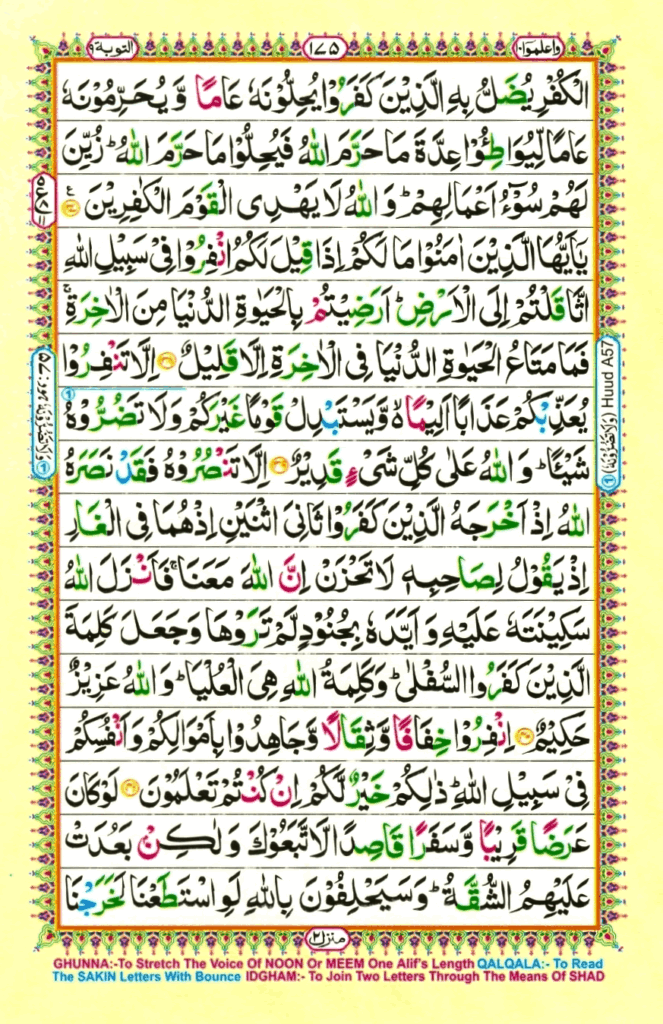 التوبة ٩
١٧٥
واعلموا ١٠
الْكُفْرِ يُضَلُّ بِهِ الَّذِيْنَ كَفَرُوْا يُحِلُّوْنَهٗ عَامًا وَّ يُحَرِّمُوْنَهٗ
عَامًا لِّيُوَاطِـُٔوْا عِدَّةَ مَا حَرَّمَ اللّٰهُ فَيُحِلُّوْا مَا حَرَّمَ اللّٰهُ ؕ زُيِّنَ
لَهُمْ سُوْٓءُ اَعْمَالِهِمْ ؕ وَ اللّٰهُ لَا يَهْدِی الْقَوْمَ الْكٰفِرِيْنَ ۝۳۷
يٰۤاَيُّهَا الَّذِيْنَ اٰمَنُوْا مَا لَكُمْ اِذَا قِيْلَ لَكُمُ انْفِرُوْا فِیْ سَبِيْلِ اللّٰهِ
اثَّاقَلْتُمْ اِلَی الْاَرْضِ ؕ اَرَضِيْتُمْ بِالْحَيٰوةِ الدُّنْيَا مِنَ الْاٰخِرَةِ ۚ
فَمَا مَتَاعُ الْحَيٰوةِ الدُّنْيَا فِی الْاٰخِرَةِ اِلَّا قَلِيْلٌ ۝۳۸ اِلَّا تَنْفِرُوْا
يُعَذِّبْكُمْ عَذَابًا اَلِيْمًا ۙ۬ وَّ يَسْتَبْدِلْ قَوْمًا غَيْرَكُمْ وَ لَا تَضُرُّوْهُ
شَيْـًٔا ؕ وَ اللّٰهُ عَلٰی كُلِّ شَیْءٍ قَدِيْرٌ ۝۳۹ اِلَّا تَنْصُرُوْهُ فَقَدْ نَصَرَهُ
اللّٰهُ اِذْ اَخْرَجَهُ الَّذِيْنَ كَفَرُوْا ثَانِیَ اثْنَيْنِ اِذْ هُمَا فِی الْغَارِ
اِذْ يَقُوْلُ لِصَاحِبِهٖ لَا تَحْزَنْ اِنَّ اللّٰهَ مَعَنَا ۚ فَاَنْزَلَ اللّٰهُ
سَكِيْنَتَهٗ عَلَيْهِ وَ اَيَّدَهٗ بِجُنُوْدٍ لَّمْ تَرَوْهَا وَ جَعَلَ كَلِمَةَ
الَّذِيْنَ كَفَرُوا السُّفْلٰی ؕ وَ كَلِمَةُ اللّٰهِ هِیَ الْعُلْيَا ؕ وَ اللّٰهُ عَزِيْزٌ
حَكِيْمٌ ۝۴۰ اِنْفِرُوْا خِفَافًا وَّ ثِقَالًا وَّ جَاهِدُوْا بِاَمْوَالِكُمْ وَ اَنْفُسِكُمْ
فِیْ سَبِيْلِ اللّٰهِ ؕ ذٰلِكُمْ خَيْرٌ لَّكُمْ اِنْ كُنْتُمْ تَعْلَمُوْنَ ۝۴۱ لَوْ كَانَ
عَرَضًا قَرِيْبًا وَّ سَفَرًا قَاصِدًا لَّاتَّبَعُوْكَ وَ لٰكِنْۢ بَعُدَتْ
عَلَيْهِمُ الشُّقَّةُ ؕ وَ سَيَحْلِفُوْنَ بِاللّٰهِ لَوِ اسْتَطَعْنَا لَخَرَجْنَا
Huud A57
منزل ٢
GHUNNA:-To Stretch The Voice Of NOON Or MEEM One Alif's Length QALQALA:- To Read
The SAKIN Letters With Bounce IDGHAM:- To Join Two Letters Through The Means Of SHAD